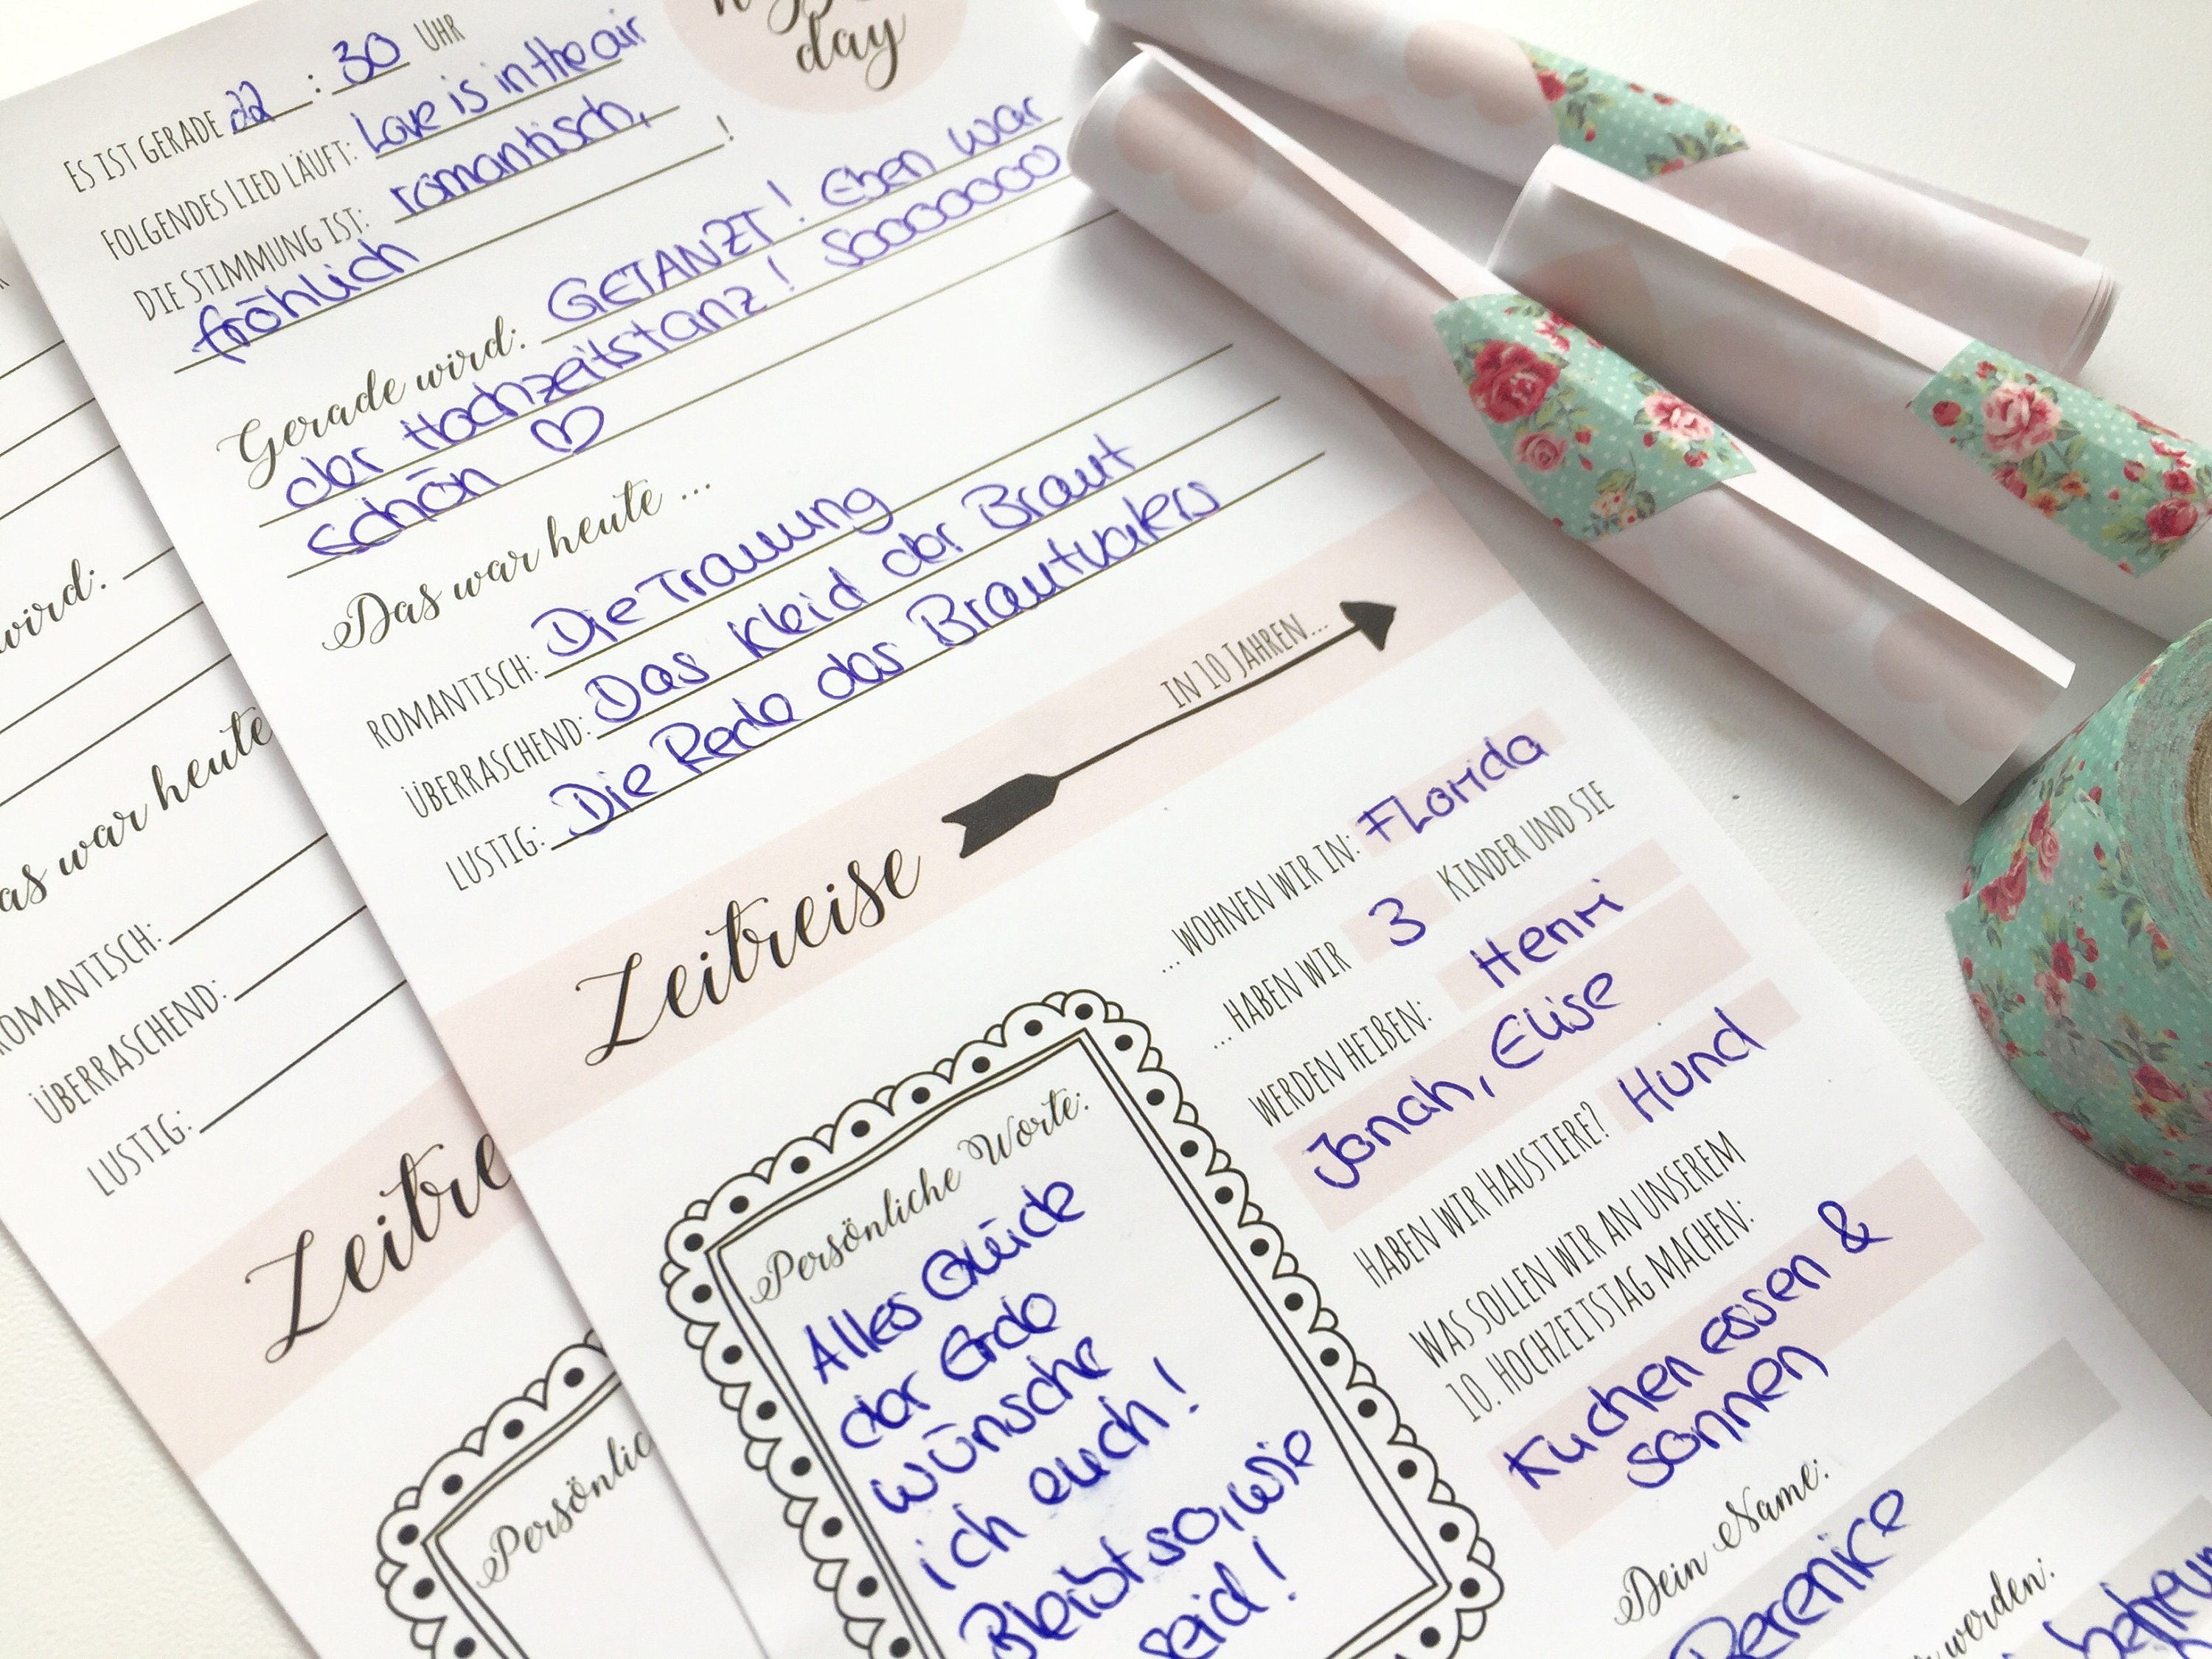 day
Es ist gerade 22 : 30 Uhr
Folgendes Lied läuft: Love is in the air
Die Stimmung ist: romantisch,
fröhlich !
Gerade wird: GETANZT! Eben war
der Hochzeitstanz! Sooooooo
schön ♡
Das war heute ...
romantisch: Die Trauung
überraschend: Das Kleid der Braut
lustig: Die Rede des Brautvaters
Zeitreise
in 10 Jahren...
... wohnen wir in: Florida
... haben wir 3 Kinder und sie
werden heißen: Henri
Jonah, Elise
Haben wir Haustiere? Hund
Was sollen wir an unserem
10. Hochzeitstag machen:
Kuchen essen &
sonnen
Dein Name:
Berenike
werden:
Persönliche Worte:
Alles Glück
der Erde
wünsche
ich euch!
Bleibt so, wie
seid!
wird:
as war heute
romantisch:
überraschend:
lustig:
Zeitre
Persönlic